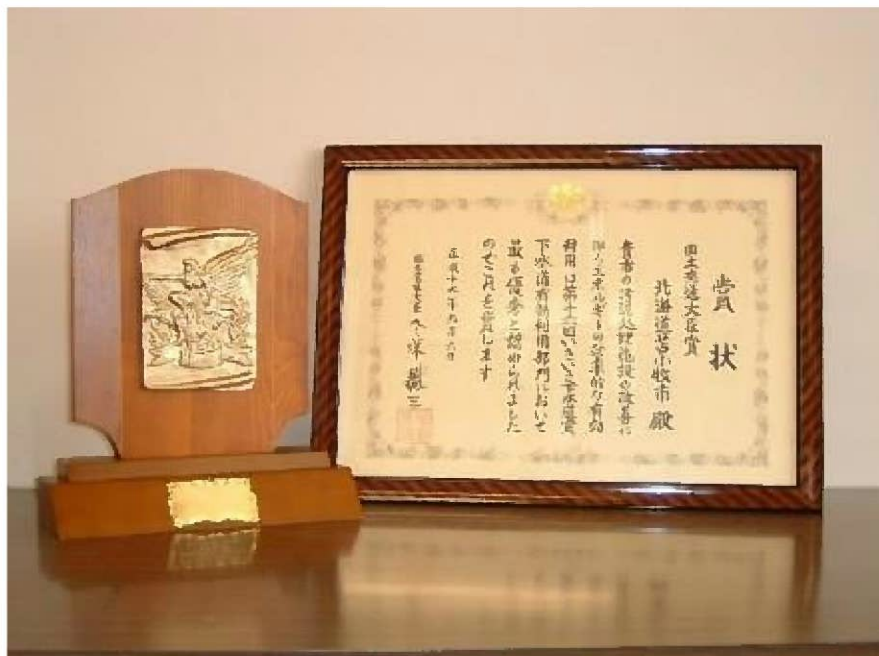 賞状
国土交通大臣賞
北海道苫小牧市 殿
貴市の汚泥処理施設の改善に
よるエネルギーの効果的な有効
利用は第十三回いきいき下水道賞
下水道有効利用部門において
最も優秀と認められました
のでこれを賞します
平成十六年九月六日
国土交通大臣